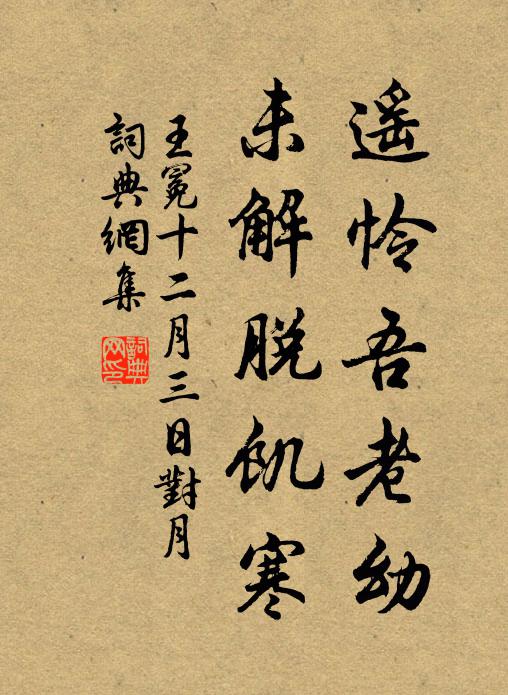 遥怜吾老幼
未解脱飢寒
王冕十二月三日對月
詞典網集
詞典网印